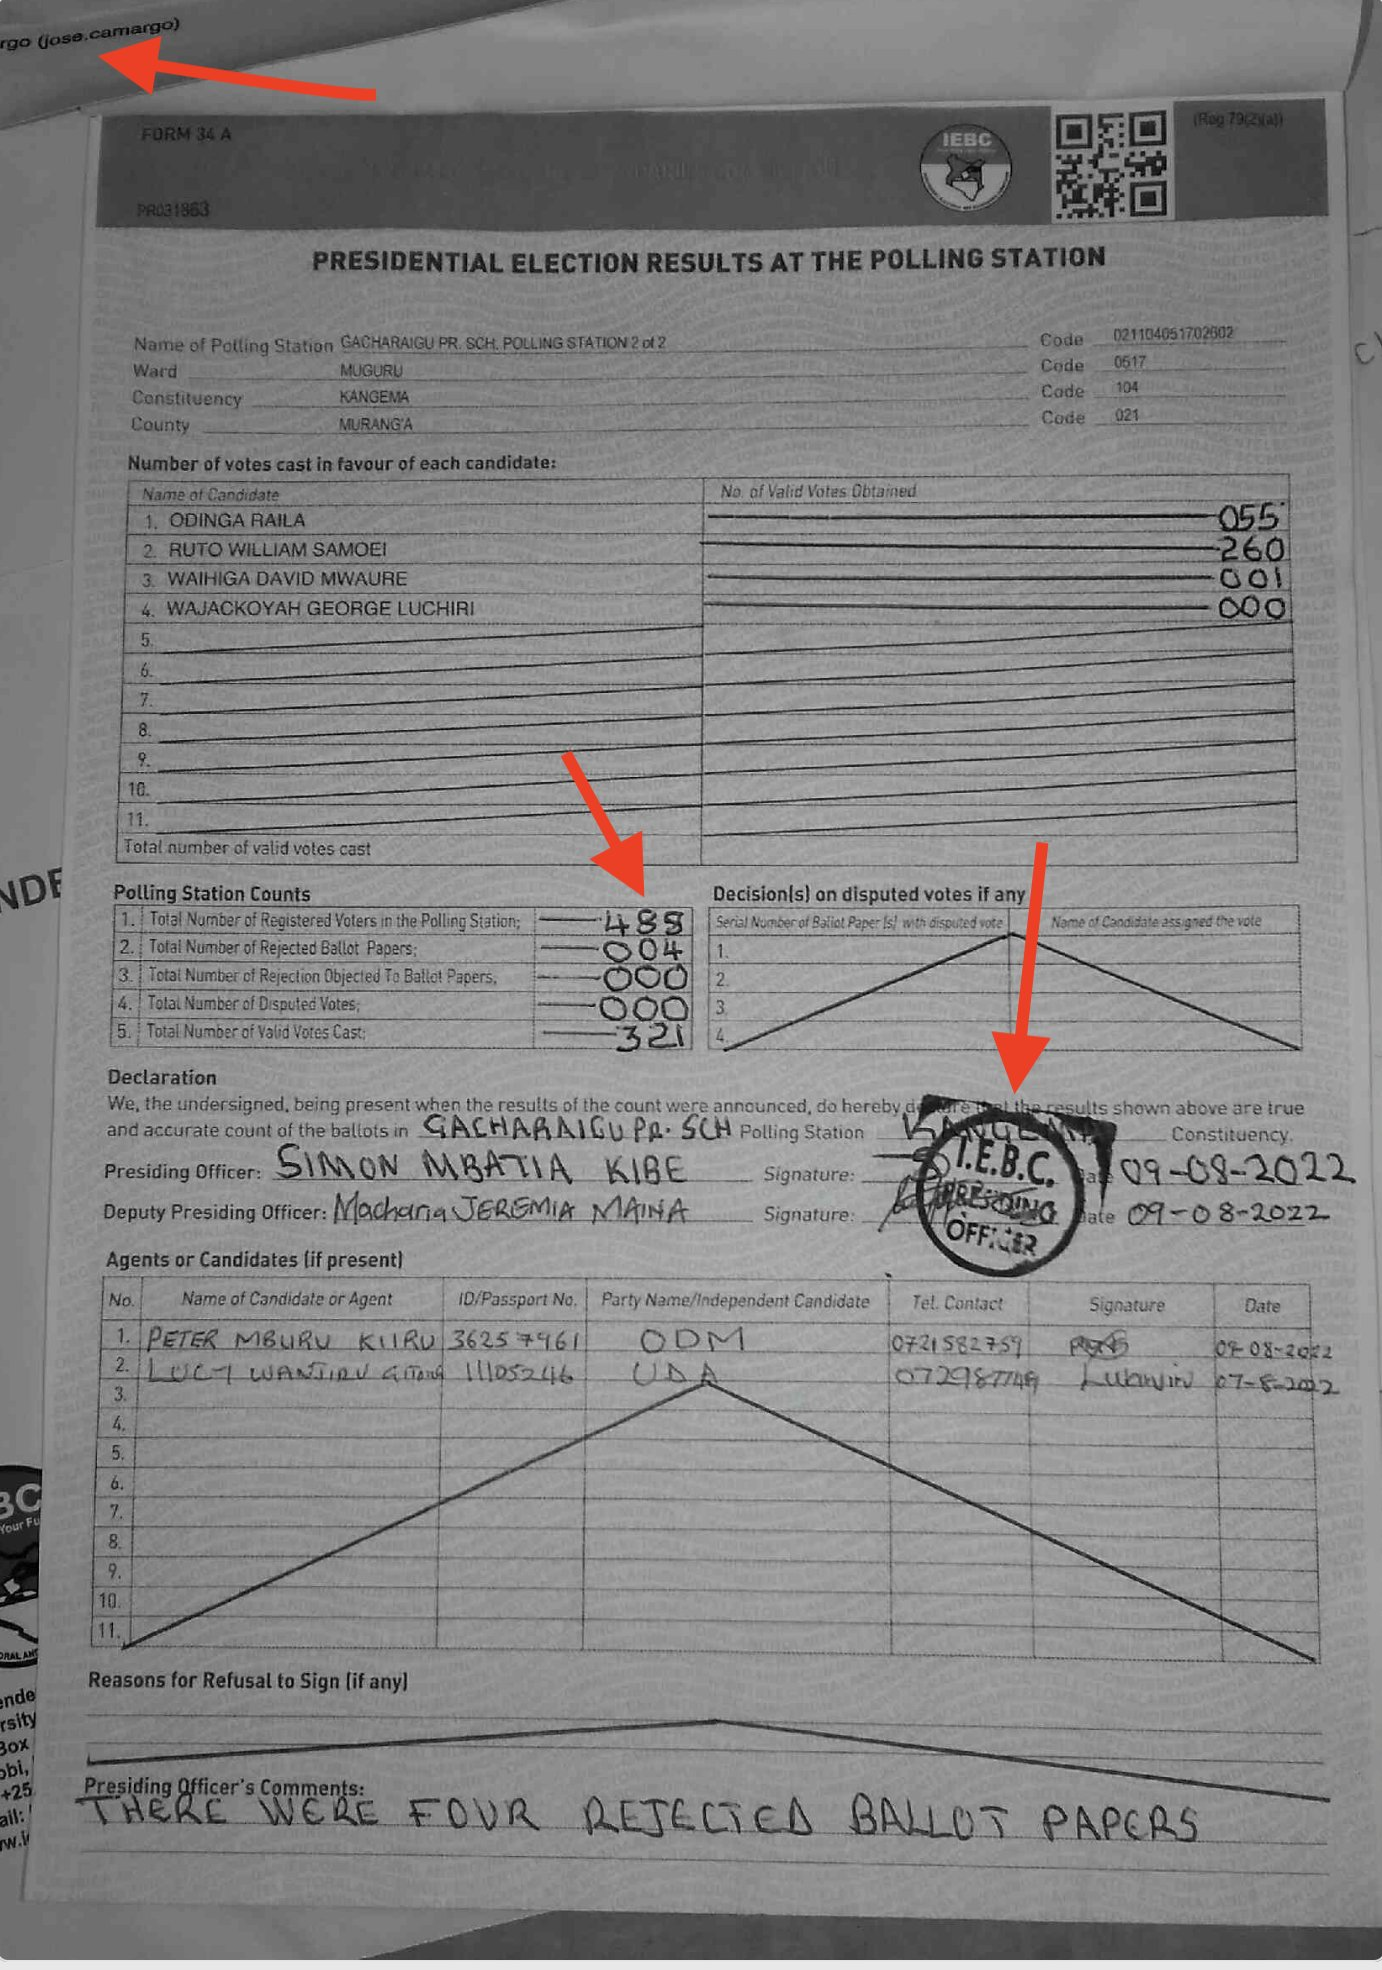 rgo (jose.camargo)
FORM 34 A
IEBC
(Reg 79(2)(a))
PR031863
PRESIDENTIAL ELECTION RESULTS AT THE POLLING STATION
Name of Polling Station GACHARAIGU PR. SCH. POLLING STATION 2 of 2 Code 021104051702602
Ward MUGURU Code 0517
Constituency KANGEMA Code 104
County MURANG'A Code 021
Number of votes cast in favour of each candidate:
Name of Candidate No. of Valid Votes Obtained
1. ODINGA RAILA 055
2. RUTO WILLIAM SAMOEI 260
3. WAIHIGA DAVID MWAURE 001
4. WAJACKOYAH GEORGE LUCHIRI 000
5.
6.
7.
8.
9.
10.
11.
Total number of valid votes cast
Polling Station Counts
1. Total Number of Registered Voters in the Polling Station; 488
2. Total Number of Rejected Ballot Papers; 004
3. Total Number of Rejection Objected To Ballot Papers, 000
4. Total Number of Disputed Votes; 000
5. Total Number of Valid Votes Cast; 321
Decision(s) on disputed votes if any
Serial Number of Ballot Paper (s) with disputed vote Name of Candidate assigned the vote
1.
2.
3.
4.
Declaration
We, the undersigned, being present when the results of the count were announced, do hereby declare that the results shown above are true
and accurate count of the ballots in GACHARAIGU PR. SCH Polling Station KANGEMA Constituency.
Presiding Officer: SIMON MBATIA KIBE Signature: Date 09-08-2022
Deputy Presiding Officer: Macharia JEREMIA MAINA Signature: Date 09-08-2022
I.E.B.C.
PRESIDING
OFFICER
Agents or Candidates (if present)
No. Name of Candidate or Agent ID/Passport No. Party Name/Independent Candidate Tel. Contact Signature Date
1. PETER MBURU KIIRU 36257961 ODM 0721582759 09-08-2022
2. LUCY WANJIRU 11105246 UDA 072987749 Lwanjiru 07-8-2022
3.
4.
5.
6.
7.
8.
9.
10.
11.
Reasons for Refusal to Sign (if any)
Presiding Officer's Comments:
THERE WERE FOUR REJECTED BALLOT PAPERS
NDE
BC
Your Fu
ORAL AN
ende
rsity
Box
obi,
+25
ail: